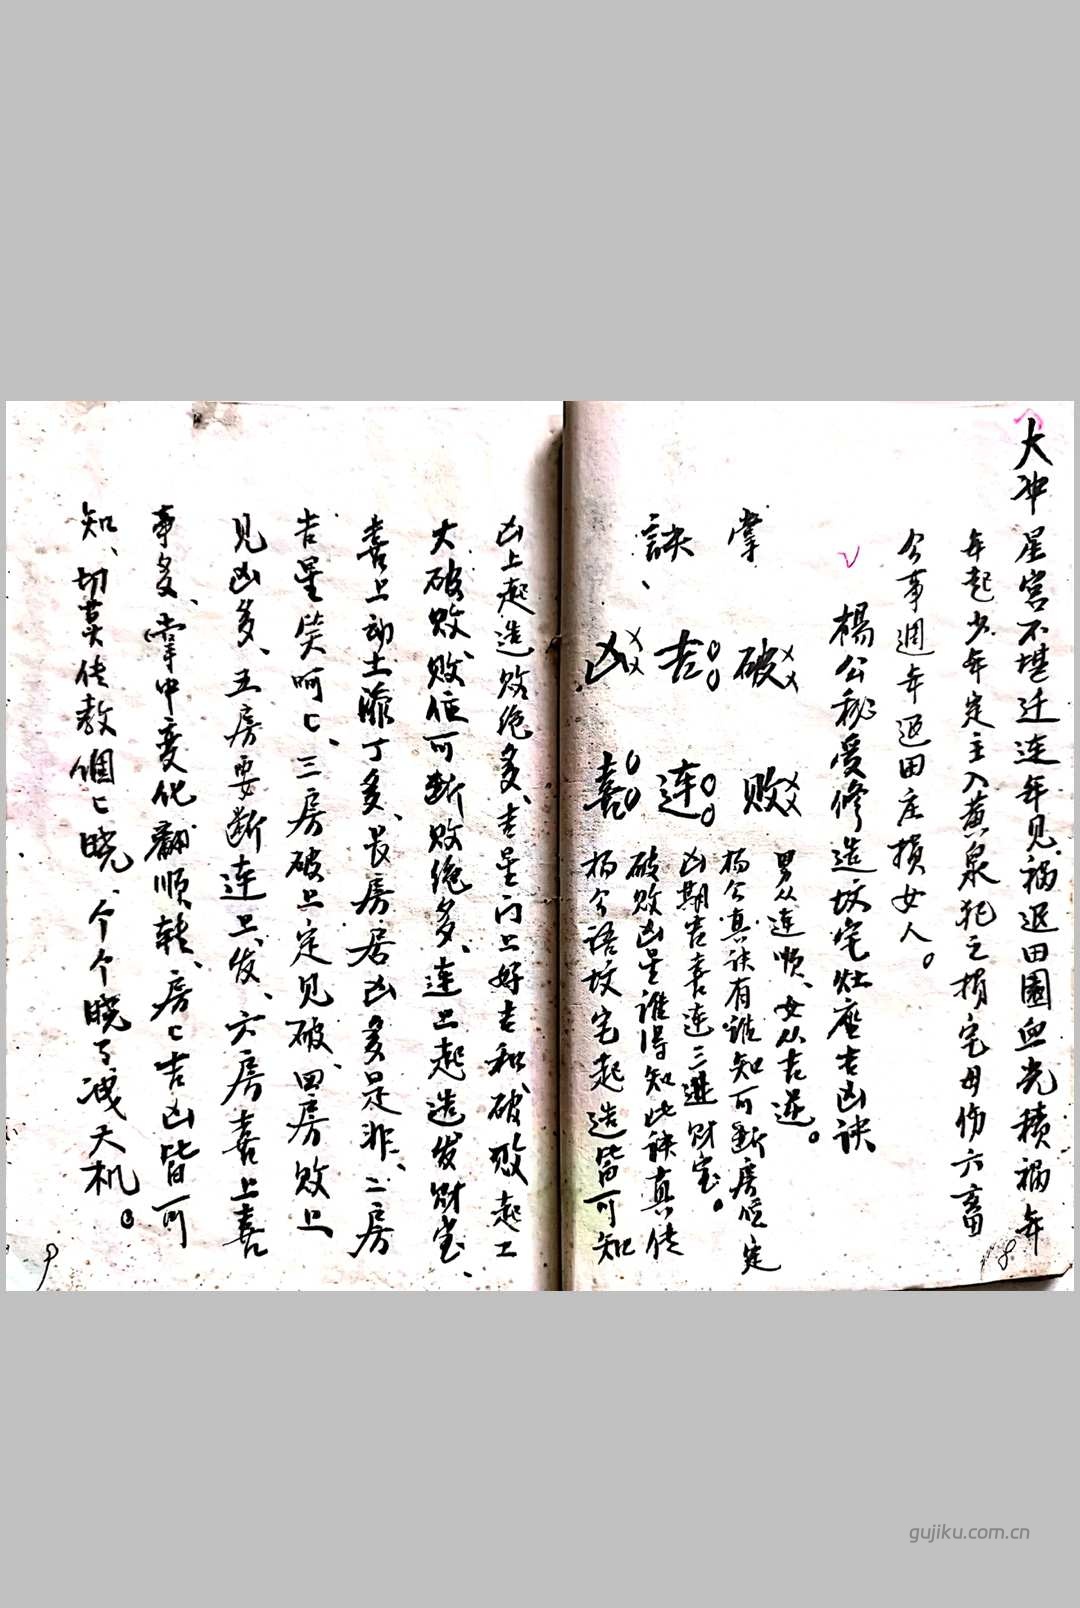 大冲星宮不堪迁连年见祸退田園血光積祸年
年起少年定主入黄泉犯之損宅母伤六畜
今事週年退田庄損女人。
楊公秘受修造坟宅灶座吉凶诀
掌
訣、
破 败
吉 连
凶 喜
男从连順、女从吉逆。
杨公真诀有谁知可断房位定
凶期吉喜连三進财宝。
破败凶星谁得知此诀真传
杨公语坟宅起造皆可知
8
凶上起造败绝多、吉星门上好吉和、破败起工
大破败、败位可断败绝多、连上起造发财宝、
喜上动土添丁多、長房居凶多是非、二房
吉星笑呵〻、三房破上定见破、四房败上
见凶多、五房要断连上发、六房喜上喜
事多、掌中变化翻順转、房〻吉凶皆可
知、切莫传教個〻晓、个个晓了泄天机。
9
gujiku.com.cn